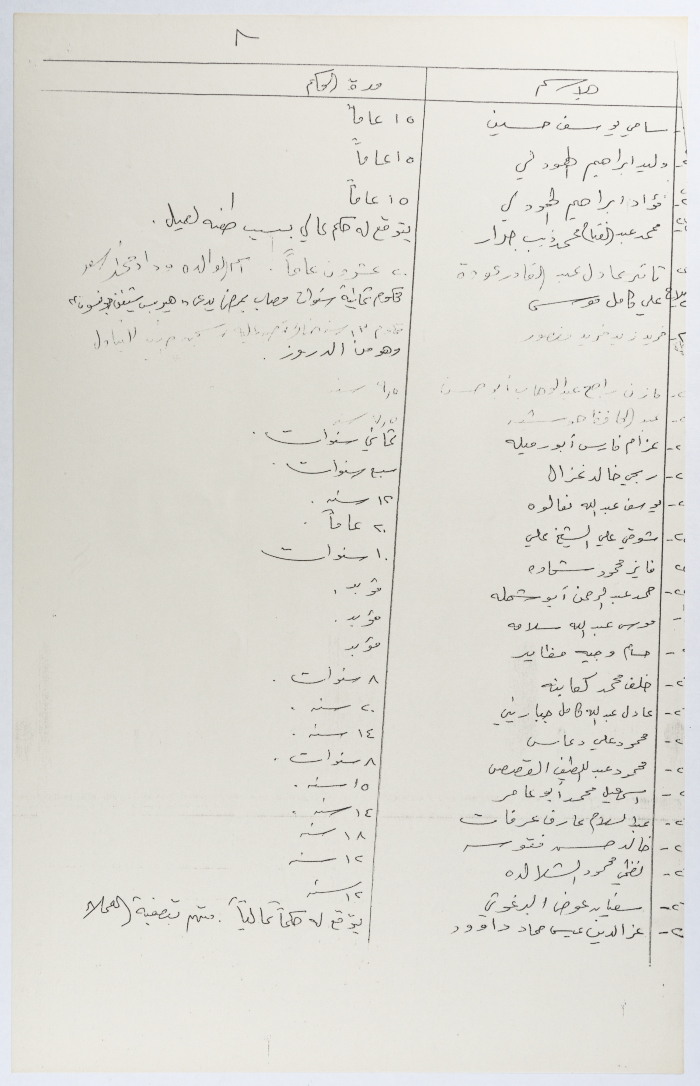 ٨
الاسم مدة الحكم
سامي يوسف حسين ١٥ عاماً
وليد ابراهيم الهودلي ١٥ عاماً
فؤاد ابراهيم الهودلي ١٥ عاماً
محمد عبد الفتاح محمد ذيب جرار يتوقع له حكم عالي بسبب طعنه لعميل .
ثائر عادل عبد القادر عودة ٢٠ عشرون عاماً .
علي كامل موسى محكوم ثمانية سنوات مصاب بمرض يدعى
فريد زيد فريد منصور
وهو من الدروز .
مازن راجح عبد الوهاب أبو حسن ١٥ سنه
عبد الحافظ
عزام فارس أبو رميله ثماني سنوات .
ربحي خالد غزال سبع سنوات .
يوسف عبد الله نعالوه ١٢ سنه .
شوقي علي الشيخ علي ٢٠ عاماً .
فايز محمود شحاده ١٠ سنوات
حمد عبد الرحمن أبو شمله مؤبد .
موسى عبد الله سلامه مؤبد .
حسام وجيه مؤبد
خلف محمد كعابنه ٨ سنوات .
عادل عبد الله كامل جباريني ٢٠ سنه .
محمود علي دعاس ١٤ سنه .
محمود عبد اللطيف القصص ٨ سنوات .
اسماعيل محمد أبو عامر ١٥ سنه .
عبد السلام عارف عرفات ١٤ سنه
خالد حسن ١٨ سنه
لطفي محمود الشلالده ١٢ سنه
سفيان عوض البرغوثي ١٢ سنه
عز الدين عيسى حماد داوود يتوقع له حكماً عالياً . متهم بتصفية العملاء